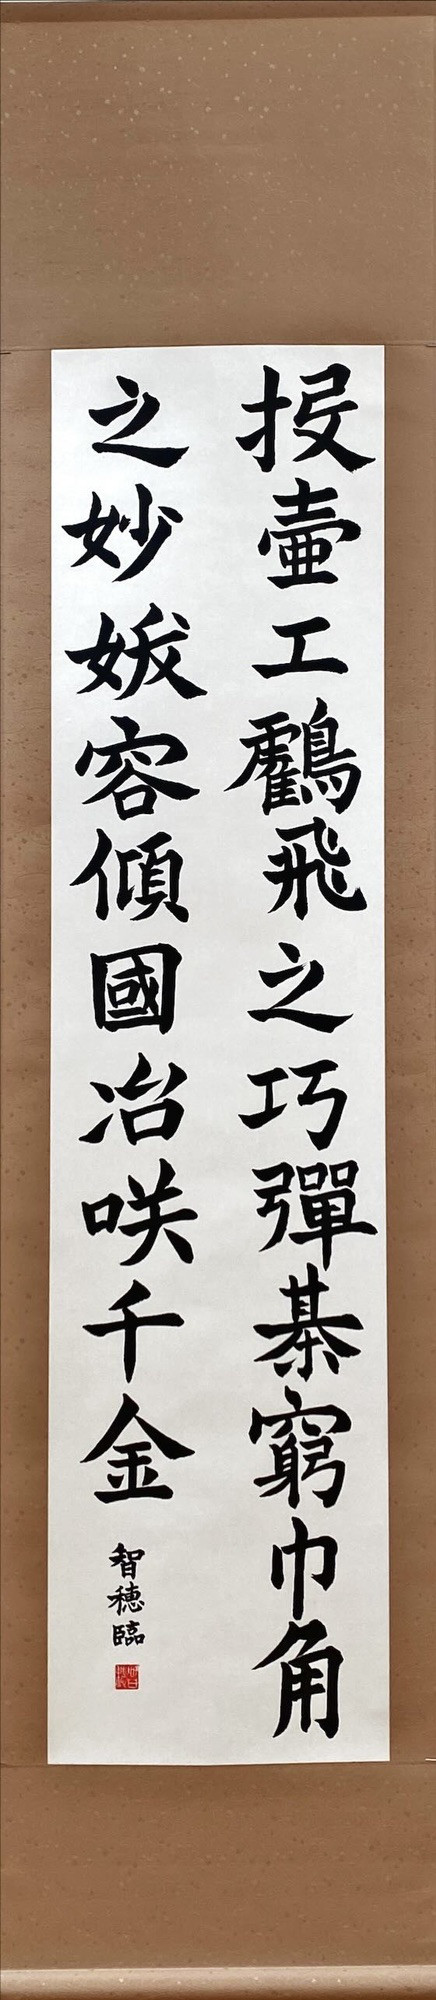 投壺工鸖飛之巧彈棊窮巾角
之妙妭容傾國冶咲千金
智穂臨